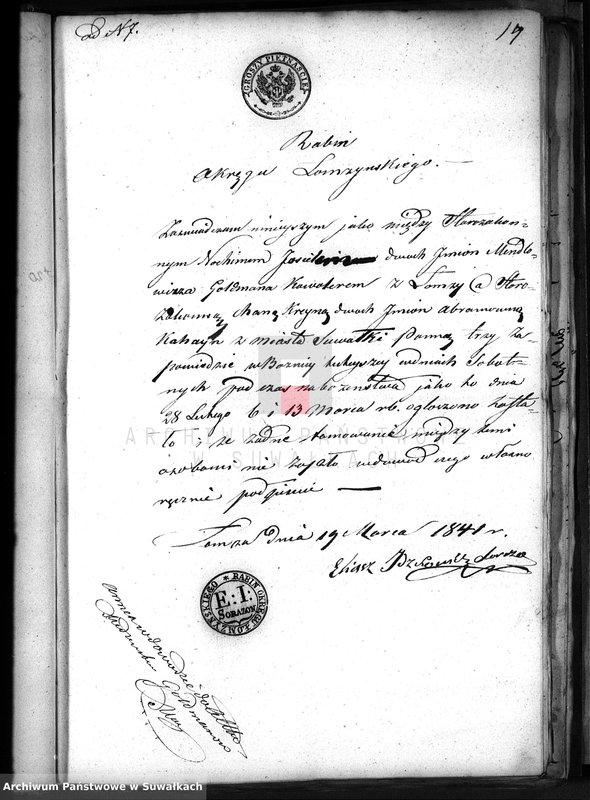 Do N 7.
17
ZGROSZY PIETNAŚCIE
Rabin
Okręgu Lomzynskiego. —
Zaswiadczam ninieyszym jako między Starozakon-
nym Nochimem dwoch Jmion Mendlo-
wicza Goldmana Kawalerem z Łomzy a Staro-
zakonną Chaną Kreyną dwoch Jmion Abramowną
z miasta Suwałki Panną, trzy Za-
powiedzie w Boznicy tutejszey w dniach Sobot-
nych podczas nabozenstwa jako to dnia
28 Lutego 6 i 13 Marca rb. ogłoszone zosta-
ło; ze zadne tamowanie między temi
osobami nie zaszło w dowod czego własno
ręcznie podpisuie —
Łomza dnia 19 Marca 1841 r.
Eliasz
RABIN OKRĘGU ŁOMZYŃSKIEGO
E: I:
SORAZON
Goldmanow
ARCHIWUM PAŃSTWOWE
W SUWAŁKACH
Archiwum Państwowe w Suwałkach